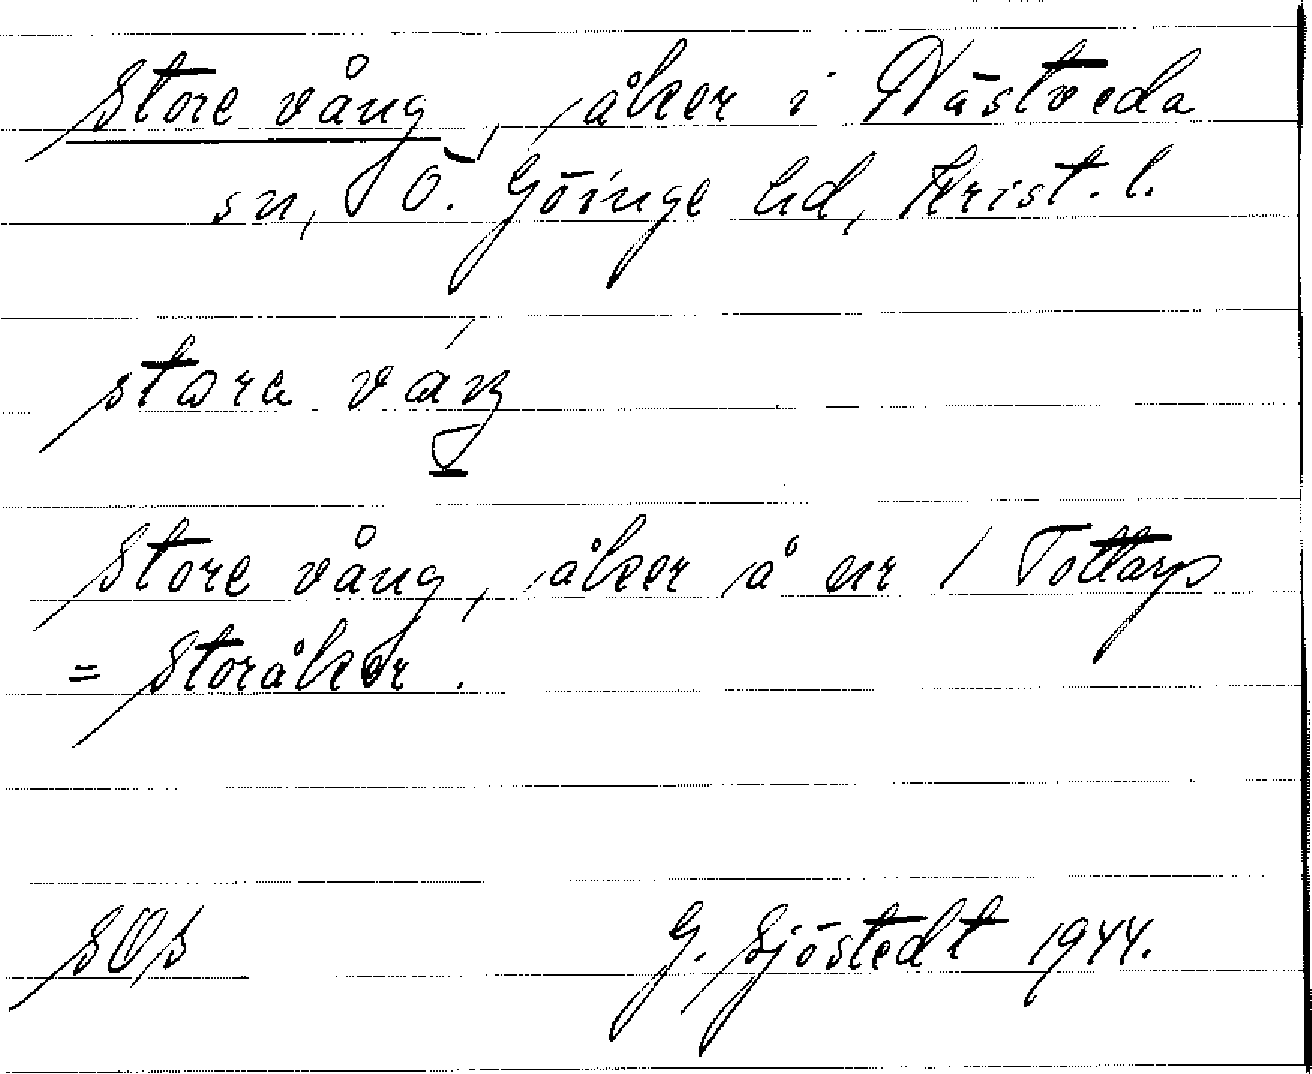 Store vång, åker i Nästveda
sn, Ö. Göinge hd, Krist. l.
stora váŋ
Store vång, åker å nr 1 Tottarp
= Storåker.
SOS
G. Sjöstedt 1944.